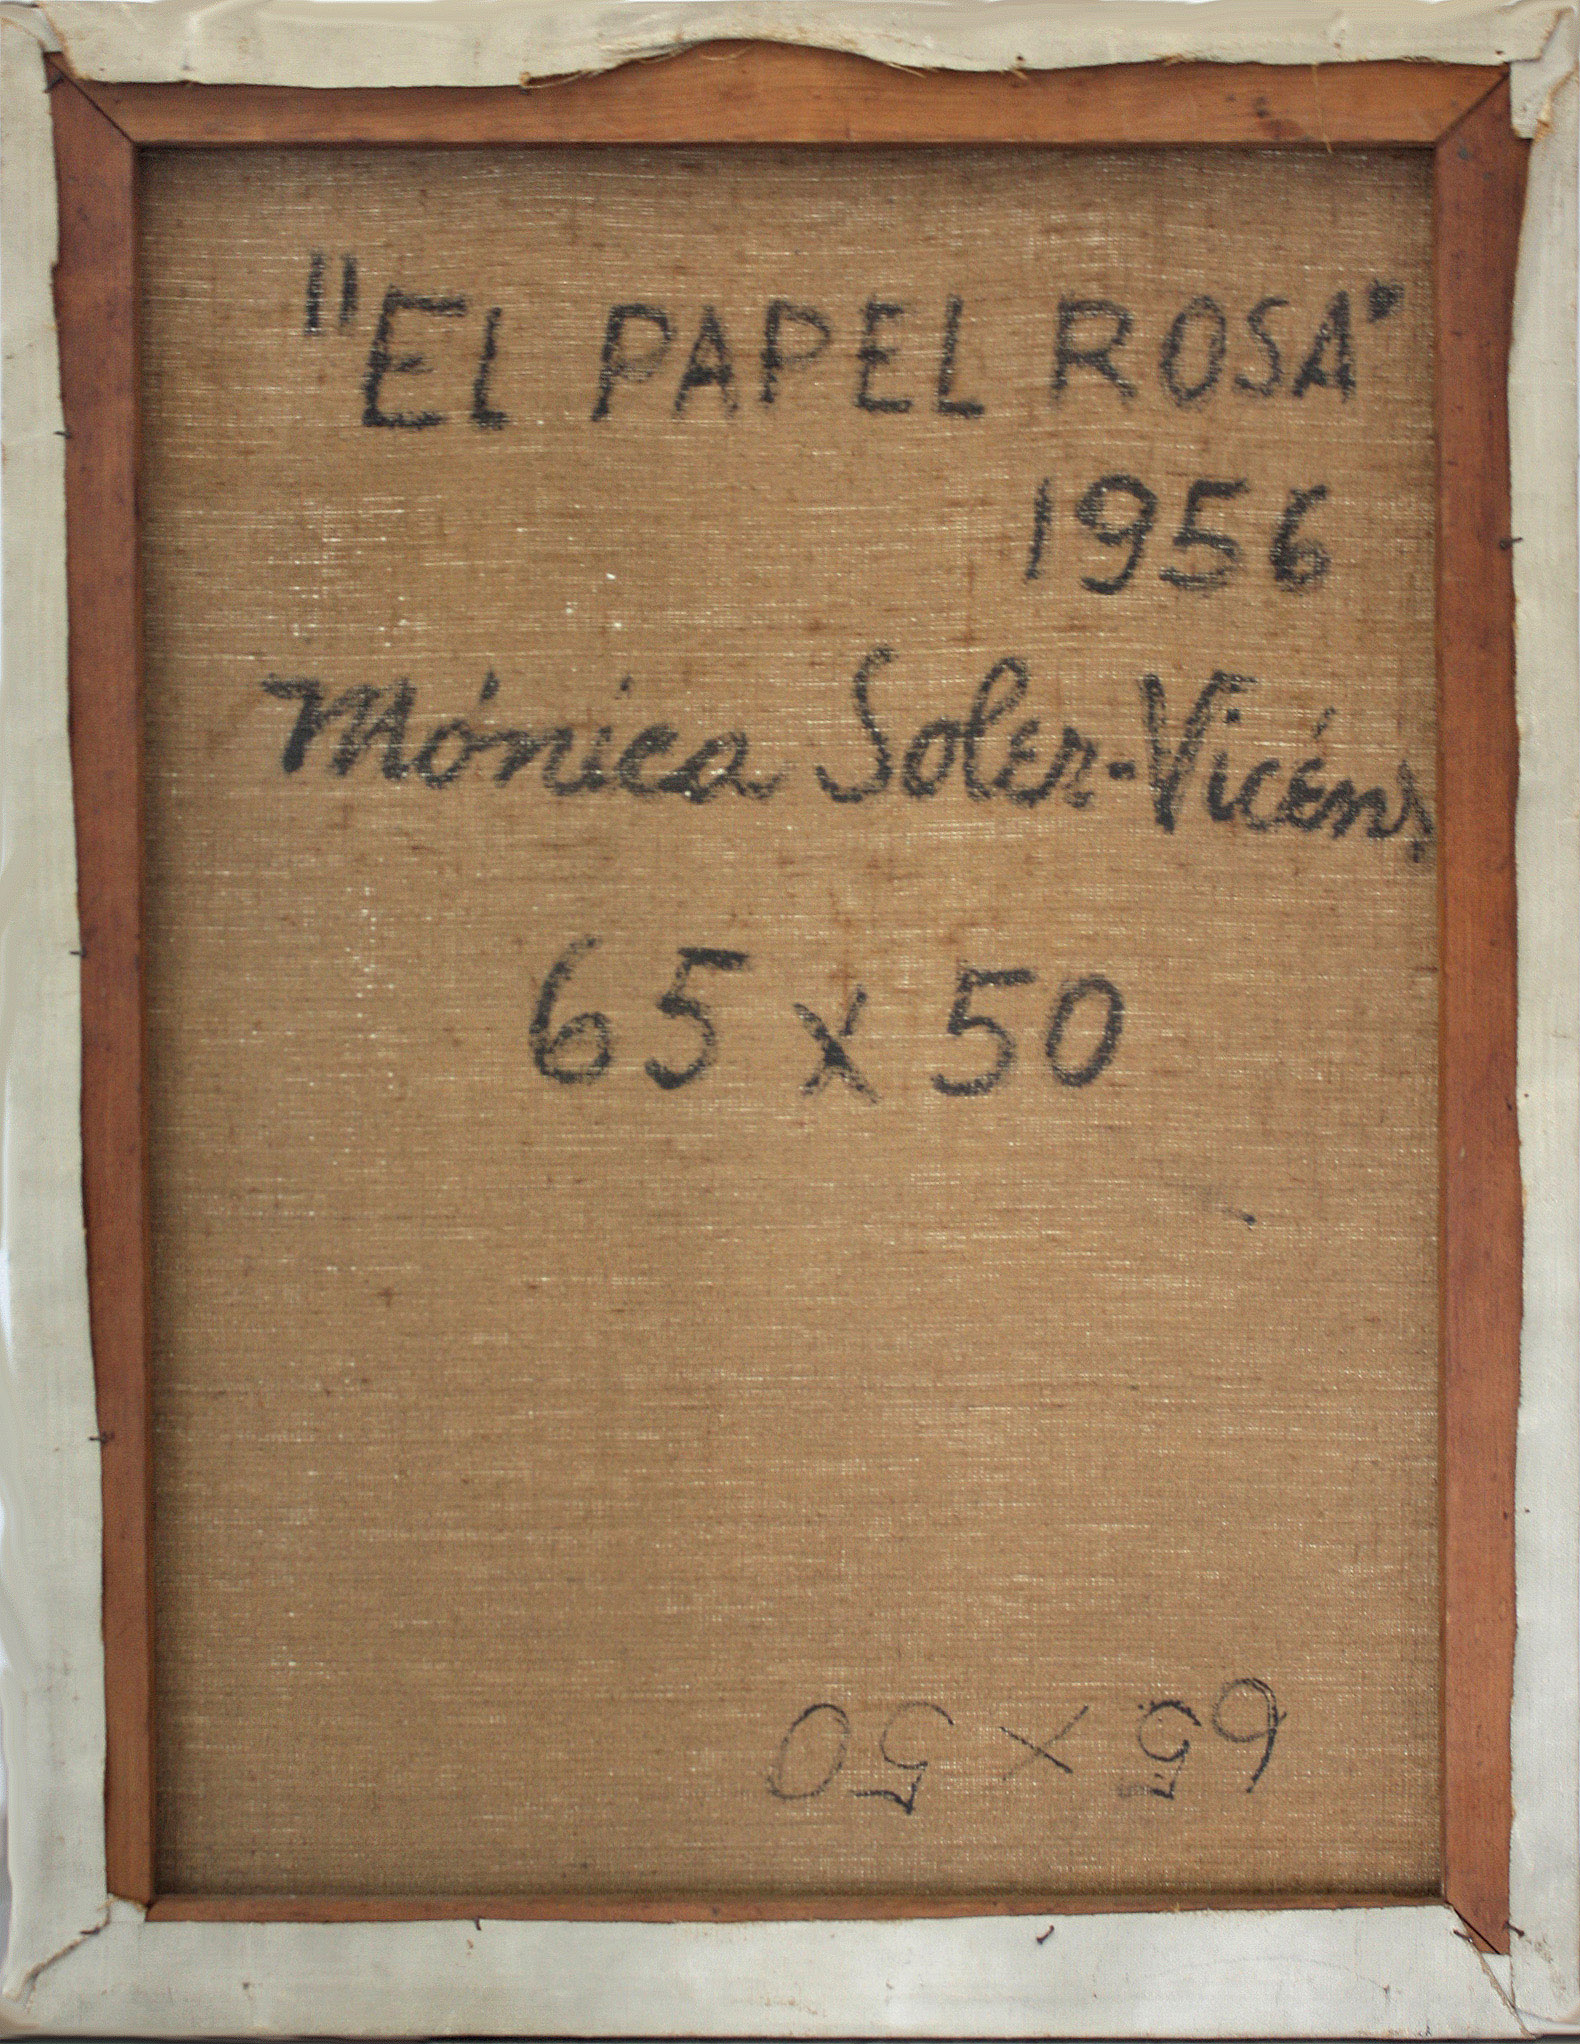 "El PAPEL ROSA"
1956
Mónica Soler-Vicéns
65 x 50
65 x 50